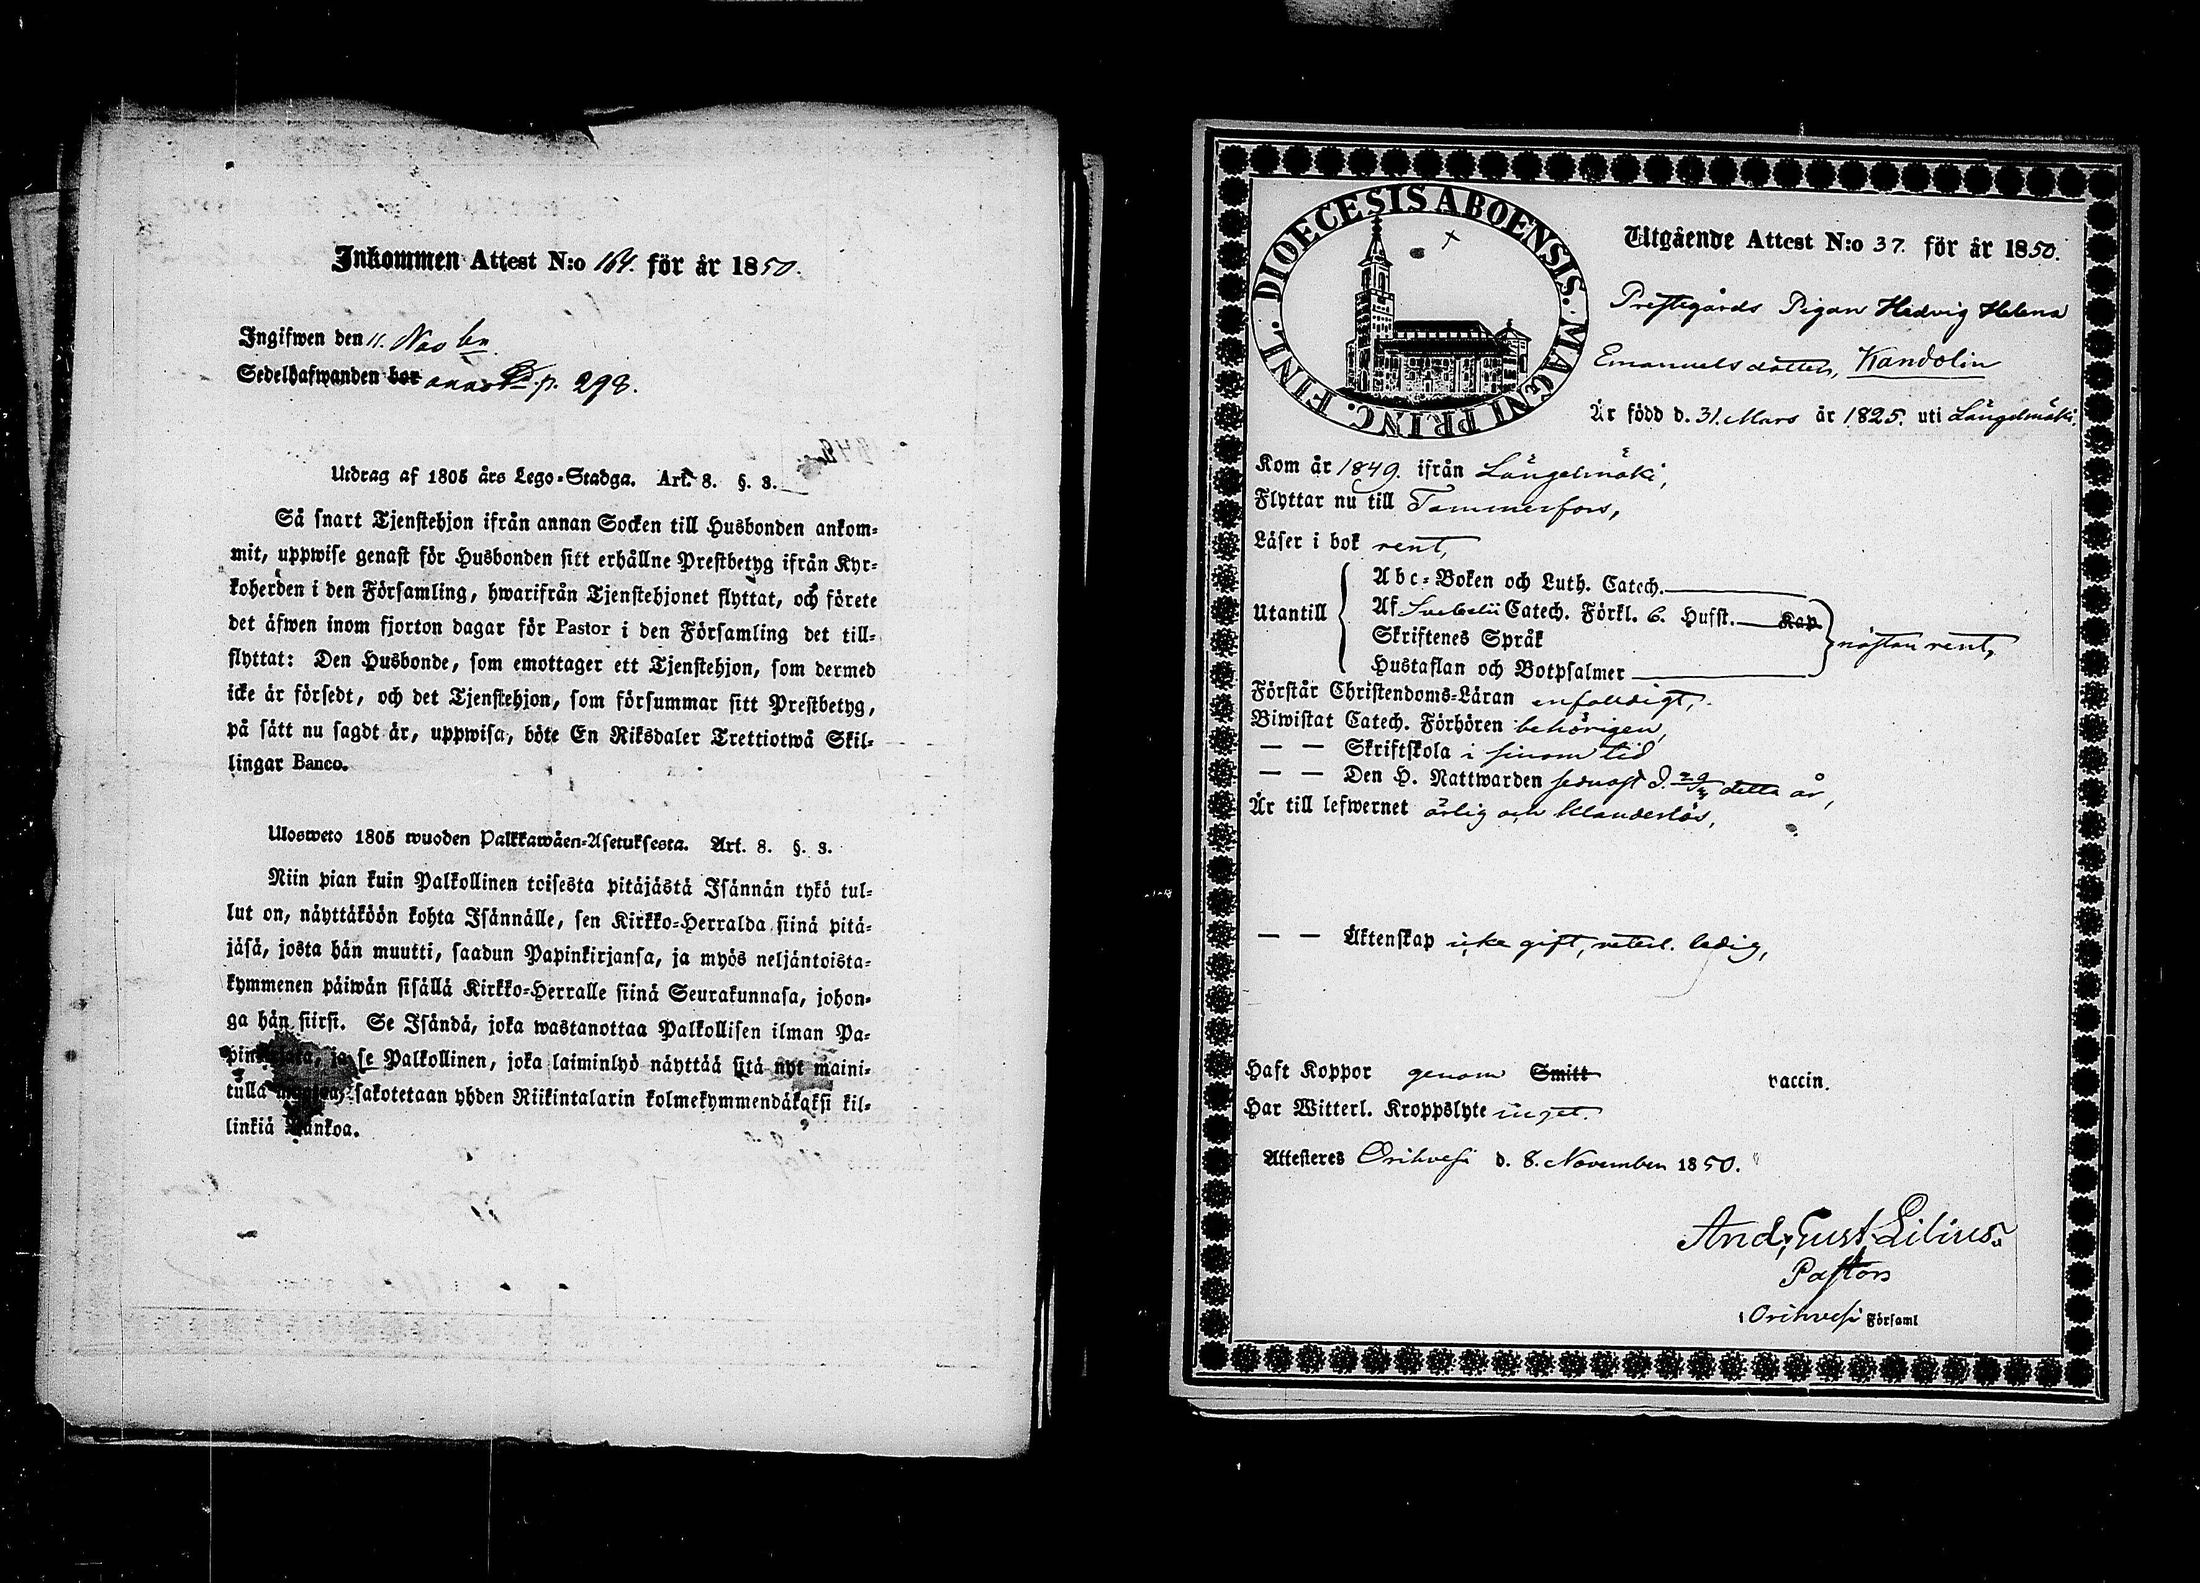 Inkommen Attest N:o 164. för år 1850.
Ingifwen den 11. Novbr
Sedelhafwanden bor p. 298.
Utdrag af 1805 års Lego-Stadga. Art. 8. §. 3.
Så snart Tjenstehjon ifrån annan Socken till Husbonden ankom-
mit, uppwise genast för Husbonden sitt erhållne Prestbetyg ifrån Kyr-
koherden i den Församling, hwarifrån Tjenstehjonet flyttat, och förete
det äfwen inom fjorton dagar för Pastor i den Församling det till-
flyttat: Den Husbonde, som emottager ett Tjenstehjon, som dermed
icke är försedt, och det Tjenstehjon, som försummar sitt Prestbetyg,
på sätt nu sagdt är, uppwisa, böte En Riksdaler Trettiotwå Skil-
lingar Banco.
Ulosweto 1805 wuoden Palkkawäen-Asetuksesta. Art. 8. §. 3.
Niin pian kuin Palkollinen toisesta pitäjästä Isännän tykö tul-
lut on, näyttäköön kohta Isännälle, sen Kirkko-Herralda siinä pitä-
jäsä, josta hän muutti, saadun Papinkirjansa, ja myös neljäntoista-
kymmenen päiwän sisällä Kirkko-Herralle siinä Seurakunnasa, johon-
ga hän siirsi. Se Isändä, joka wastanottaa Palkollisen ilman Pa-
pinkirjata, ja se Palkollinen, joka laiminlyö näyttää sitä nyt maini-
tulla sakotetaan yhden Riikintalarin kolmekymmendäkaksi kil-
linkiä Bankoa.
DIOECESIS ABOENSIS. MAGNI PRINC. FINL.
Utgående Attest N:o 37. för år 1850.
Prestegårds Pigan Hedvig Helena
Emanuelsdotter, Kandolin
Är född d. 31. Mars år 1825. uti Längelmäki.
Kom år 1849. ifrån Längelmäki,
Flyttar nu till Tammerfors,
Läser i bok rent,
Utantill
Abc-Boken och Luth. Catech.
Af Svebelii Catech. Förkl. 6. Hufst. Kap
Skriftenes Språk
Hustaflan och Botpsalmer
nästan rent,
Förstår Christendoms-Läran enfalldigt,
Biwistat Catech. Förhören behörigen,
— — Skriftskola i sinom tid
— — Den H. Nattwarden sednast d. detta år,
Är till lefwernet ärlig och klanderlös,
— — Äktenskap icke gift, veterl. ledig,
Haft Koppor genom Smitt vaccin.
Har Witterl. Kroppslyte inget.
Attesteres Orihvesi d. 8. November 1850.
And. Gust. Lilius.
Pastor
i Orihvesi Församl